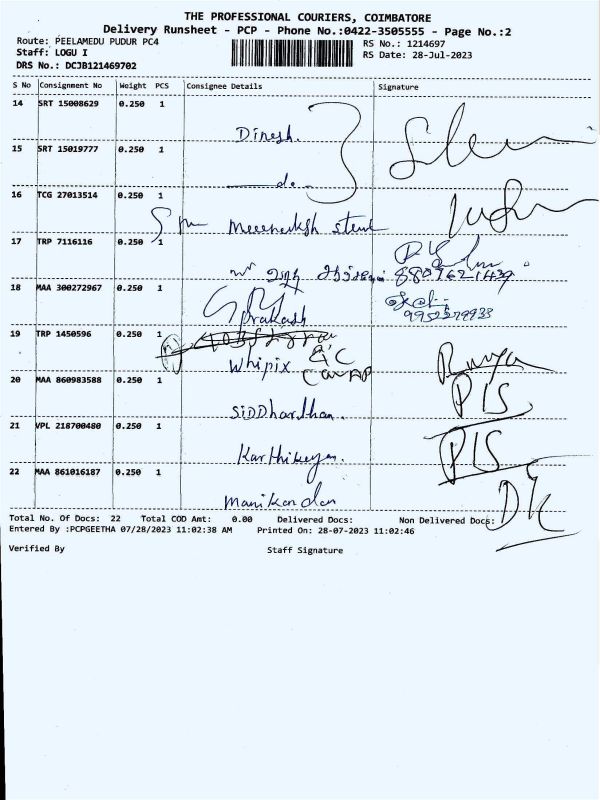 THE PROFESSIONAL COURIERS, COIMBATORE
Delivery Runsheet - PCP - Phone No.:0422-3505555 - Page No.:2
Route: PEELAMEDU PUDUR PC4
Staff: LOGU I
DRS No.: DCJB121469702
RS No.: 1214697
RS Date: 28-Jul-2023
S No Consignment No Weight PCS Consignee Details Signature
14 SRT 15008629 0.250 1
Dinesh.
15 SRT 15019777 0.250 1
do
16 TCG 27013514 0.250 1
17 TRP 7116116 0.250 1
18 MAA 300272967 0.250 1
Prakash
9952379933
19 TRP 1450596 0.250 1
Whipix
20 MAA 860983588 0.250 1
SiDDhardhan.
21 VPL 218700480 0.250 1
Karthikeyan.
22 MAA 861016187 0.250 1
Manikandan
Total No. Of Docs: 22 Total COD Amt: 0.00 Delivered Docs: Non Delivered Docs:
Entered By :PCPGEETHA 07/28/2023 11:02:38 AM Printed On: 28-07-2023 11:02:46
Verified By Staff Signature